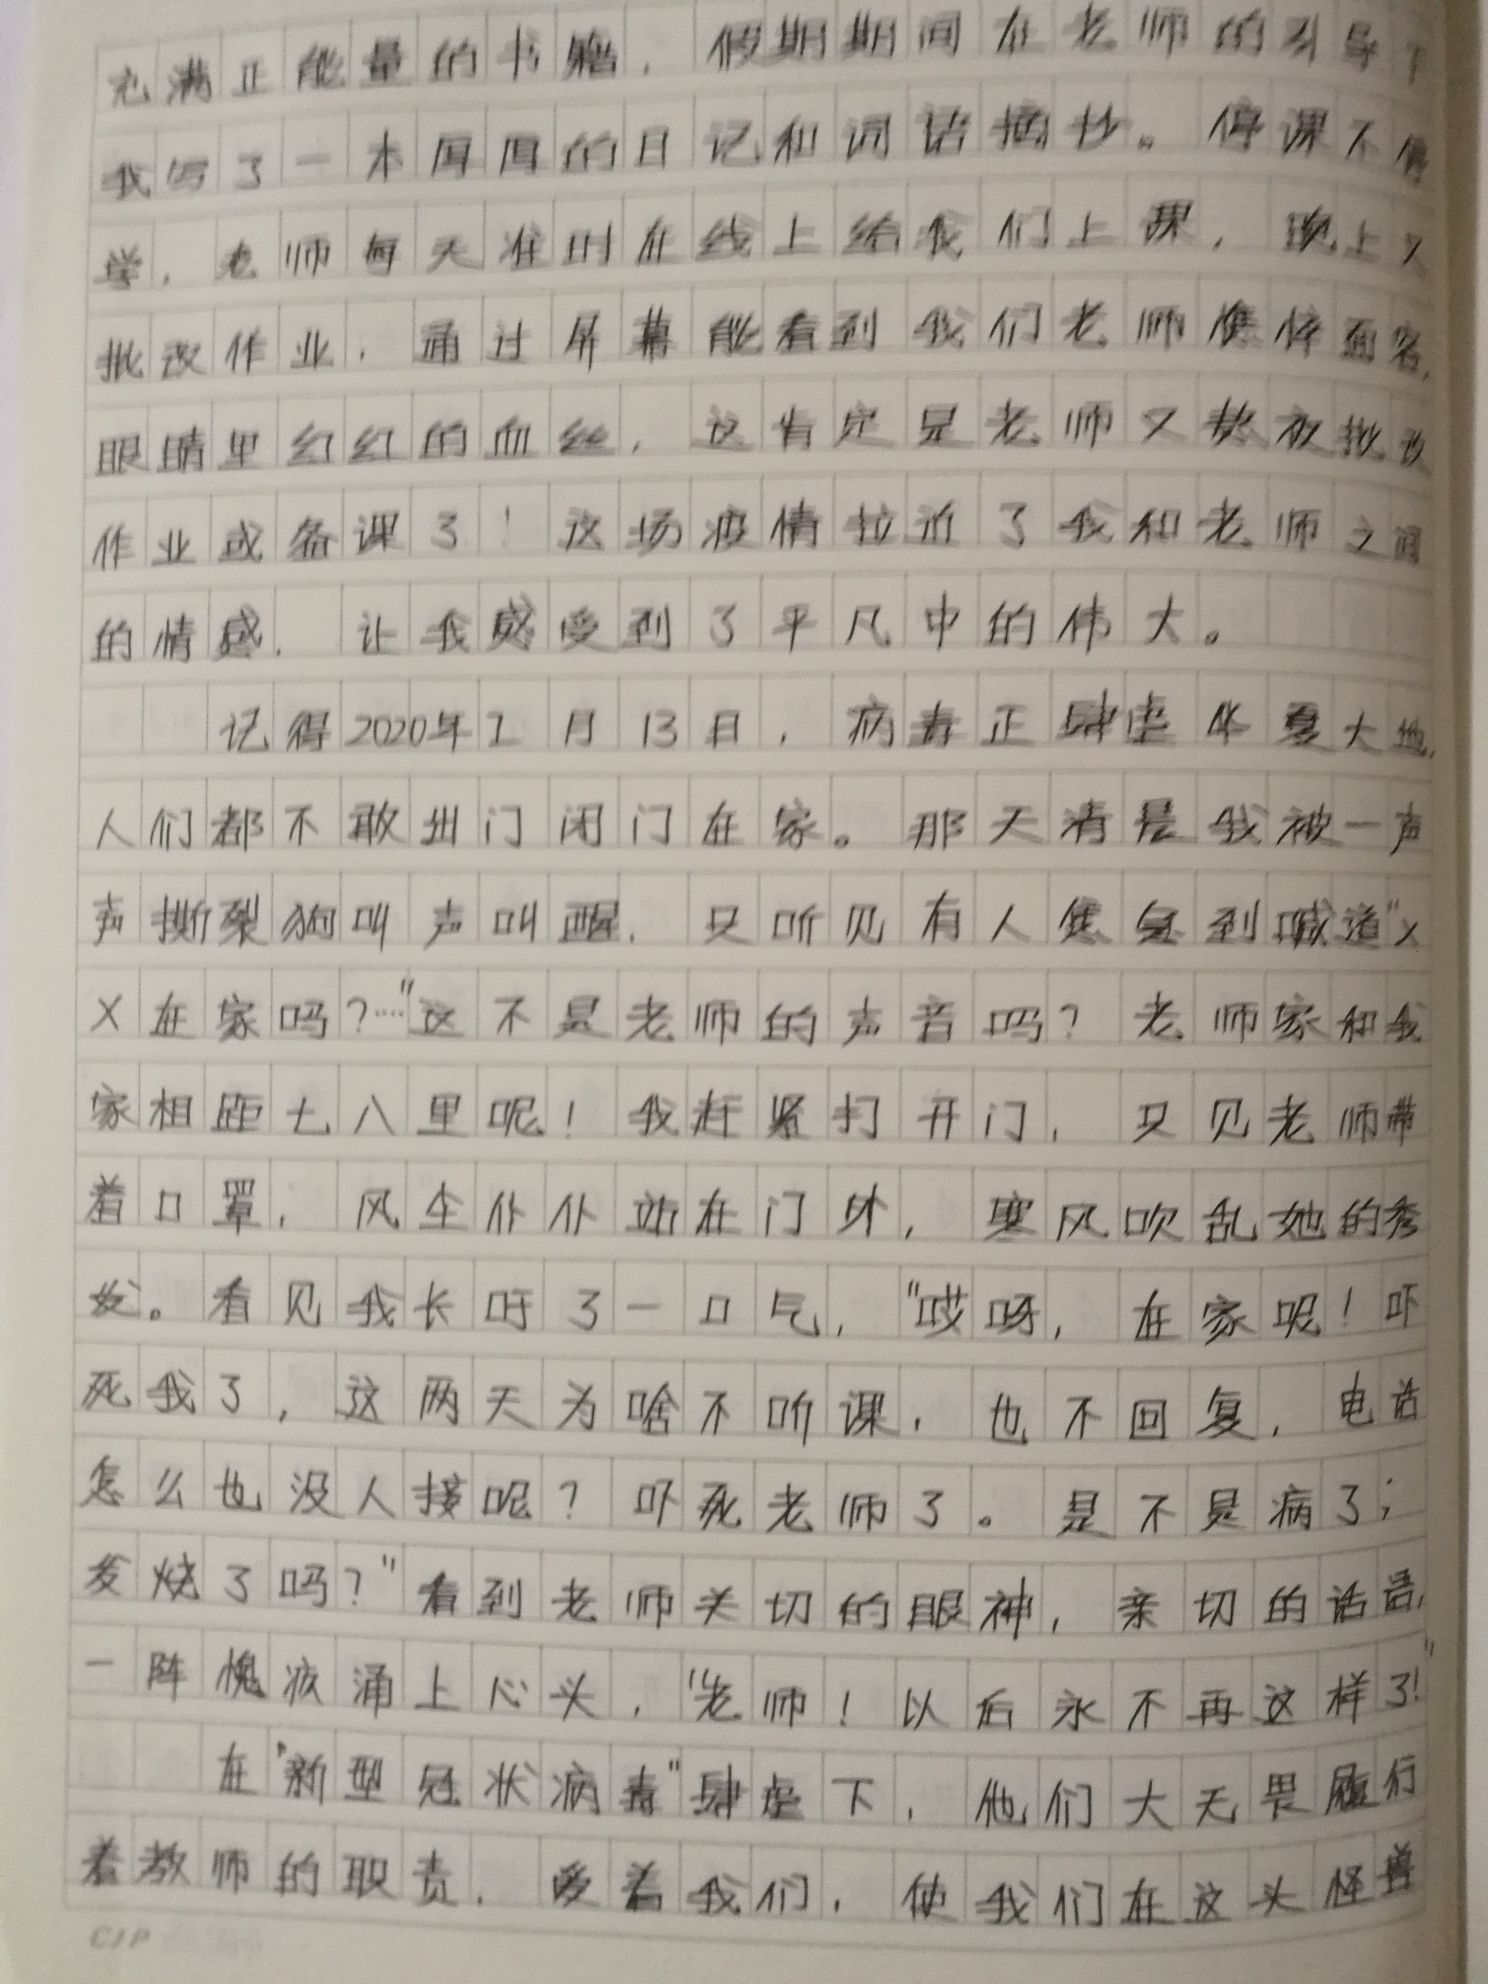 充满正能量的书籍，假期期间在老师的引导下
我写了一本厚厚的日记和词语摘抄。停课不停
学，老师每天准时在线上给我们上课，晚上又
批改作业，通过屏幕能看到我们老师憔悴面容，
眼睛里红红的血丝，这肯定是老师又熬夜批改
作业或备课了！这场疫情拉近了我和老师之间
的情感，让我感受到了平凡中的伟大。
记得2020年2月13日，病毒正肆虐华夏大地，
人们都不敢出门闭门在家。那天清晨我被一声
声撕裂狗叫声叫醒，只听见有人焦急到喊道"X
X在家吗？…"这不是老师的声音吗？老师家和我
家相距七八里呢！我赶紧打开门，只见老师带
着口罩，风尘仆仆站在门外，寒风吹乱她的秀
发。看见我长吁了一口气，"哎呀，在家呢！吓
死我了，这两天为啥不听课，也不回复，电话
怎么也没人接呢？吓死老师了。是不是病了；
发烧了吗？"看到老师关切的眼神，亲切的话语，
一阵愧疚涌上心头，"老师！以后永不再这样了！"
在"新型冠状病毒"肆虐下，他们大无畏履行
着教师的职责，爱着我们，使我们在这头怪兽
C/P